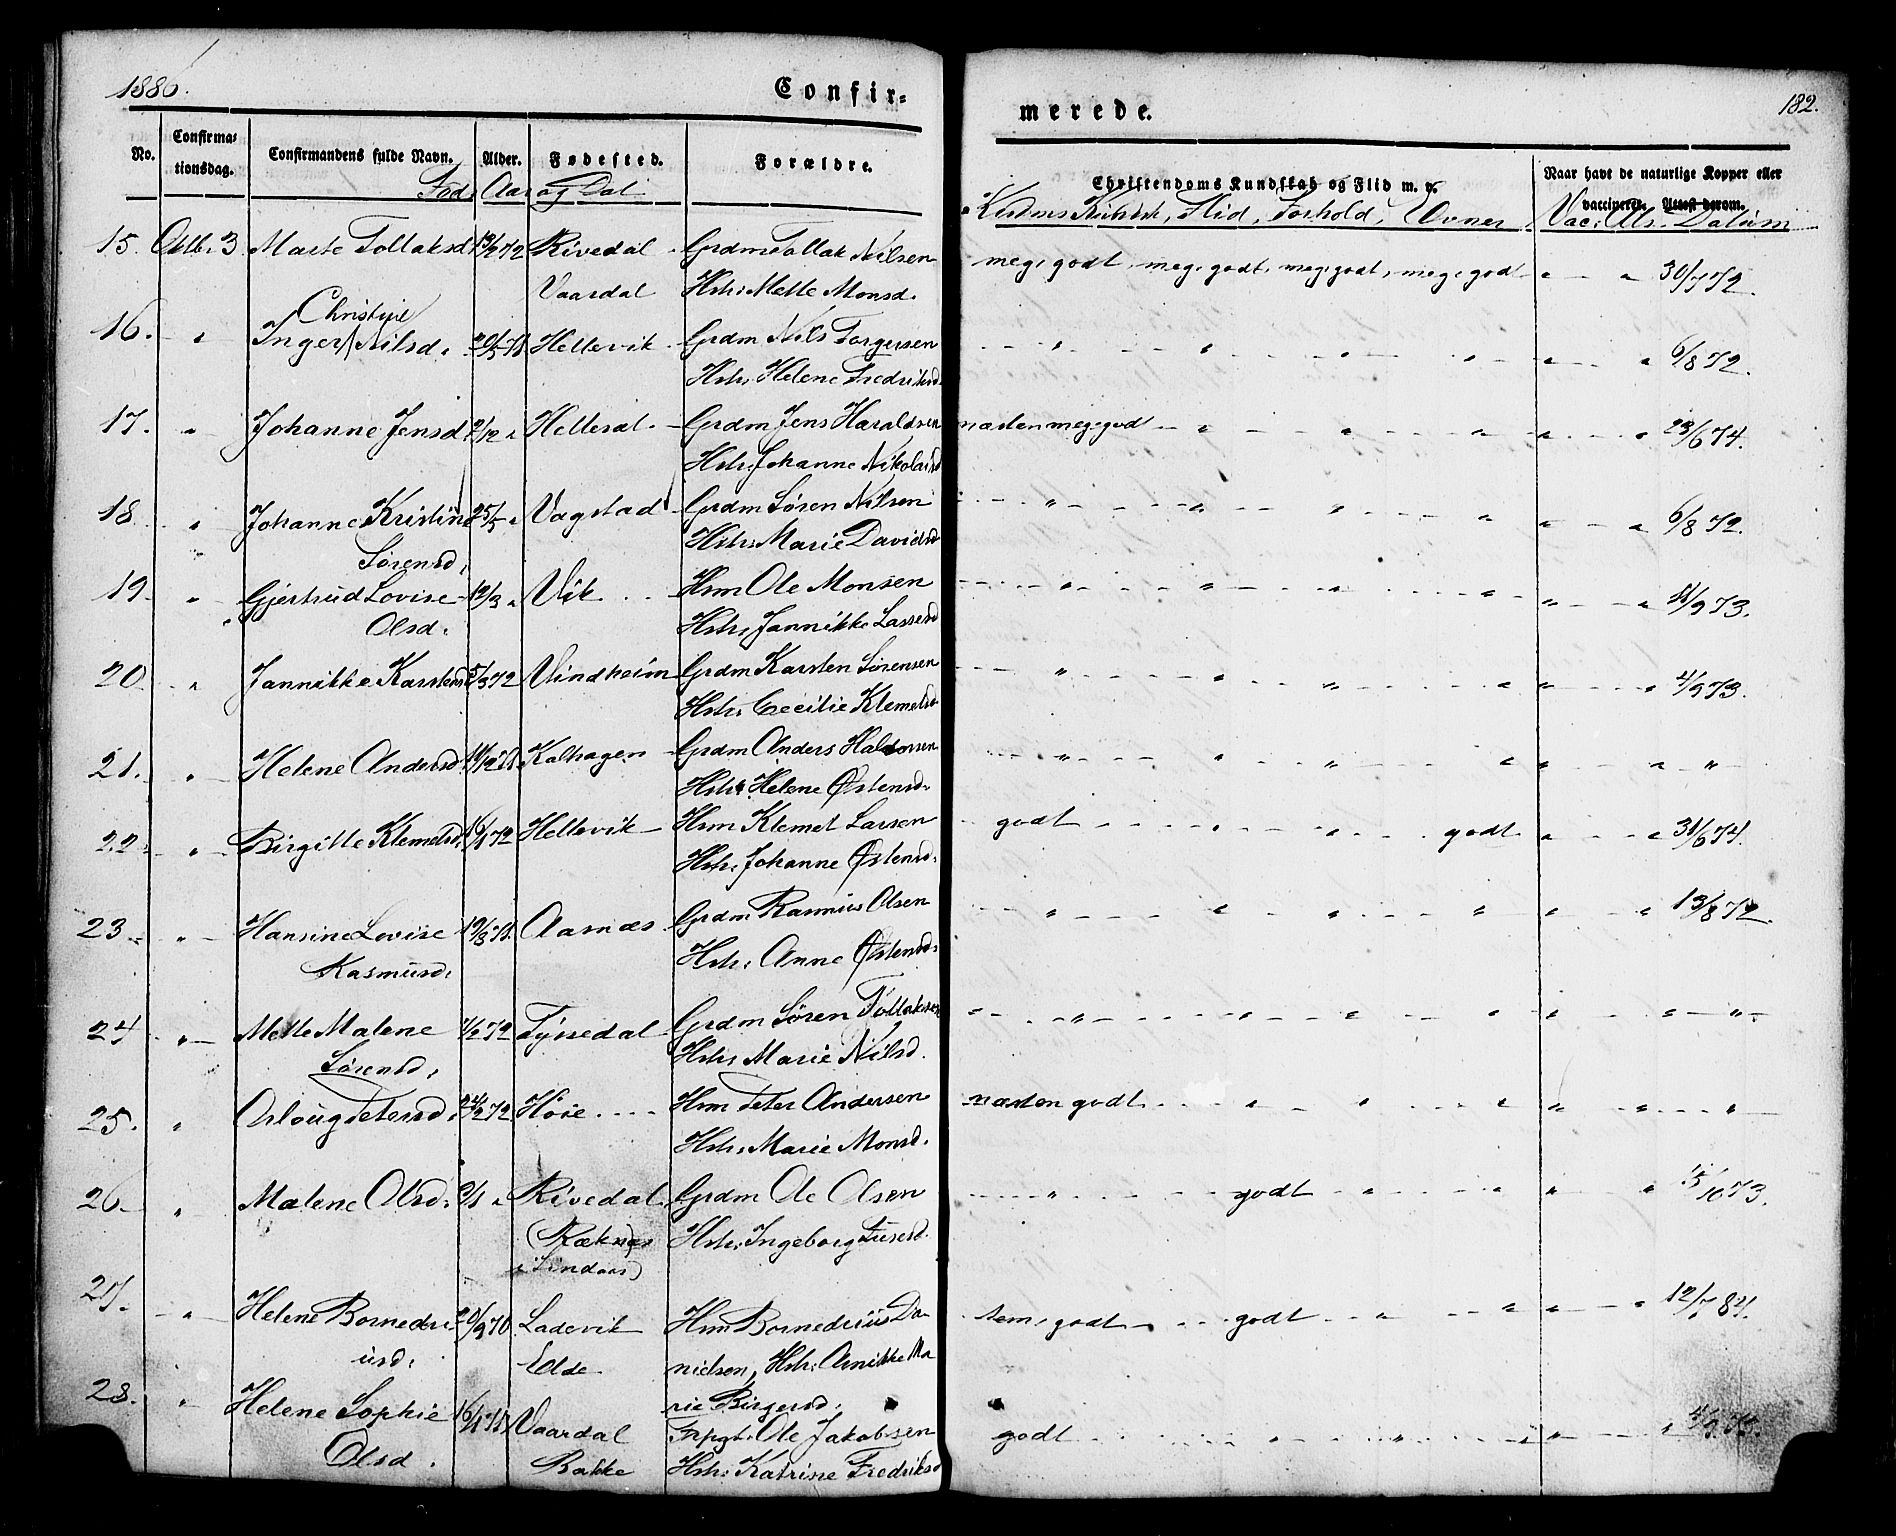 1886.
Confir-
merede.
182.
No.
Confirma-
tionsdag.
Confirmandens fulde Navn.
Alder.
Fødested.
Forældre.
Christendoms Kundskab og Flid m. v.
Naar havt de naturlige Kopper eller
vaccineret. Attest derom.
Fød. Aar og Dat.
Kristend. Kundsk., Flid, Forhold, Evner
Vac. Als. Datum
15. Oktb. 3 Marte Tollaksd. 13/2 72 Rivedal Grdm Tollak Nilsen meg. godt, meg. godt, meg. godt, meg. godt " " 30/7 72.
Vaardal Hstr. Mette Monsd.
Christine
16. " Inger Nilsd. Hellevik Grdm Nils Torgersen " " " " " " 6/8 72.
Hstr. Helene Fredriksd.
17. " Johanne Jensd. 2/12 " Hellesdl. Grdm Jens Haraldsen næsten meg. godt " " " " " 23/6 74.
Hstr. Johanne Nikolaisd.
18 " Johanne Kristine 25/5 " Vagstad Grdm Søren Nilsen " " " " " " 6/8 72.
Sørensd. Hstr. Marie Davidsd.
19. " Gjertrud Lovise 12/3 " Vik Hm Ole Monsen " " " " " " 4/9 73.
Olsd. Hstr. Jannikke Lassesd.
20 " Jannikke Karstensd. 5/3 72 Vindheim Grdm Karsten Sørensen " " " " " " 4/9 73.
Hstr. Cecilie Klemetsd.
21. " Helene Andersd. Kalhagen Grdm Anders Haldorsen " " " " " " "
Hstr. Helene Østensd.
22 " Birgitte Klemetsd. 16/1 72 Hellevik Hm Klemet Larsen godt " " godt " " 30/6 74.
Hstr. Johanne Østensd.
23 " Hansine Lovise Aarnæs Grdm Rasmus Olsen " " " " " " 13/8 72.
Rasmusd. Hstr. Anne Østensd.
24 " Mette Malene 1/2 72 Tyssedal Grdm Søren Tollaksen " " " " " " "
Sørensd. Hstr. Marie Nilsd.
25. " Aslaug Petersd. 24/2 72 Høie Hm Peter Andersen næsten godt " " " " " "
Hstr. Marie Monsd.
26 " Malene Olsd. Rivedal Grdm Ole Olsen " godt " " " " 15/10 73.
(Ræknæs Hstr. Ingeborg
i Lindaas)
27. " Helene Bornedri- 20/9 70 Ladevik Hm Bornedrius Da- tem. godt godt " " " " 12/7 84.
usd. Elde nielsen, Hstr. Anikke Ma
rie Birgersd.
28. " Helene Sophie Vaardal Frpgt. Ole Jakobsen godt " " " " "
Olsd. Bakke Hstr. Katrine Fredriksd.